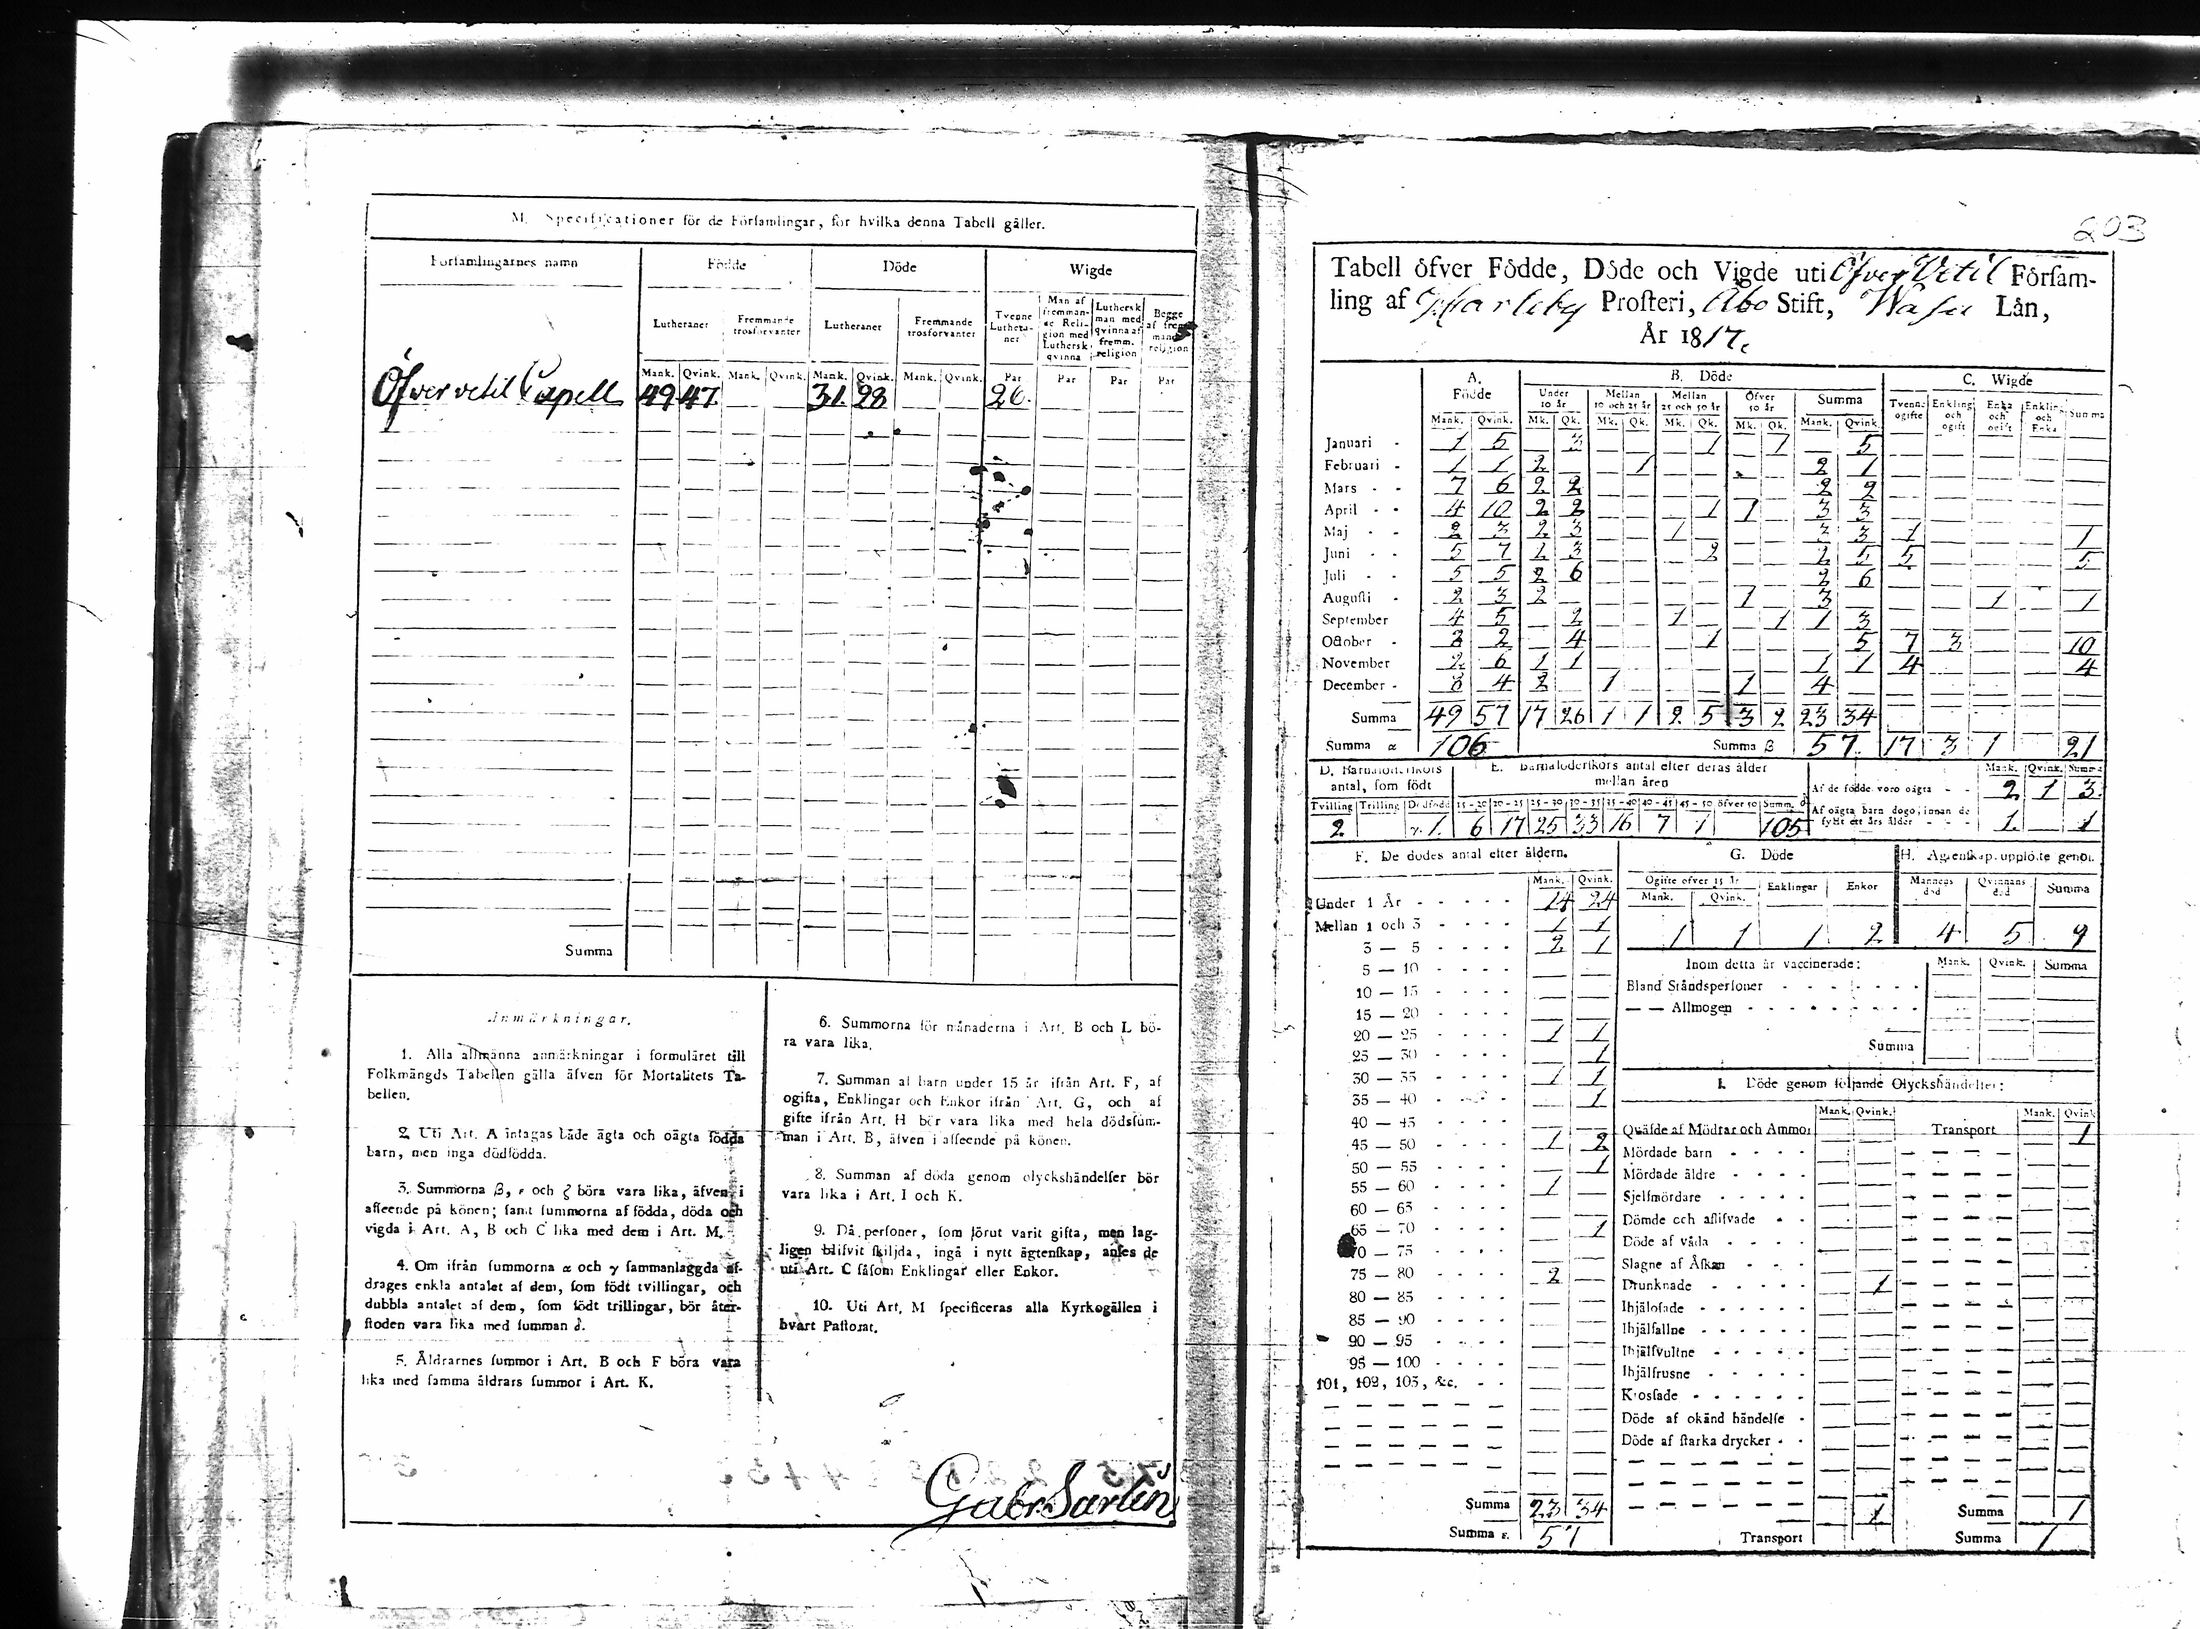 M. Specificationer för de Församlingar, för hvilka denna Tabell gäller.
Församlingarnes namn Födde Döde Wigde
Lutheraner Fremmande trosförvanter Lutheraner Fremmande trosförvanter Tvenne Lutheraner Man af fremmande Religion med Luthersk qvinna Luthersk man med qvinna af fremm. religion Begge af fremmande religion
Mank. Qvink. Mank. Qvink. Mank. Qvink. Mank. Qvink. Par Par Par Par
Öfvervetil Capell 49 47 31 28 26
Summa
Anmärkningar.
1. Alla allmänna anmärkningar i formuläret till
Folkmängds Tabellen gälla äfven för Mortalitets Ta-
bellen.
2. Uti Art. A intagas både ägta och oägta födda
barn, men inga dödfödda.
3. Summorna β, ε och ζ böra vara lika, äfven i
afseende på könen; samt summorna af födda, döda och
vigda i Art. A, B och C lika med dem i Art. M.
4. Om ifrån summorna α och γ sammanlaggda af-
drages enkla antalet af dem, som födt tvillingar, och
dubbla antalet af dem, som födt trillingar, bör åter-
stoden vara lika med summan δ.
5. Åldrarnes summor i Art. B och F böra vara
lika med samma åldrars summor i Art. K.
6. Summorna för månaderna i Art. B och L bö-
ra vara lika.
7. Summan af barn under 15 år ifrån Art. F, af
ogifta, Enklingar och Enkor ifrån Art. G, och af
gifte ifrån Art. H bör vara lika med hela dödssum-
man i Art. B, äfven i afseende på könen.
8. Summan af döda genom olyckshändelser bör
vara lika i Art. I och K.
9. Då personer, som förut varit gifta, men lag-
ligen blifvit skiljda, ingå i nytt ägtenskap, anses de
uti Art. C såsom Enklingar eller Enkor.
10. Uti Art. M specificeras alla Kyrkogällen i
hvart Pastorat.
Gabr. Sarlin
203
Tabell öfver Födde, Döde och Vigde uti Öfver Vetil Församling
ling af Gamlakarleby Prosteri, Åbo Stift, Wasa Län,
År 1817.
A. Födde B. Döde C. Wigde
Under 10 år Mellan 10 och 25 år Mellan 25 och 50 år Öfver 50 år Summa Tvenne ogifte Enkling och ogift Enka och ogift Enkling och Enka Summa
Mank. Qvink. Mk. Qk. Mk. Qk. Mk. Qk. Mk. Qk. Mank. Qvink.
Januari 1 5 3 1 1 5
Februari 1 1 2 1 2 1
Mars 7 6 2 2 2 2
April 4 10 2 2 1 1 3 3
Maj 2 3 2 3 1 3 3 1 1
Juni 5 7 2 3 2 2 5 5 5
Juli 5 5 2 6 2 6
Augusti 2 3 2 1 3 1 1
September 4 5 2 1 1 1 3
October 2 4 1 5 7 3 10
November 2 6 1 1 1 1 4 4
December 4 2 1 1 4
Summa 49 57 17 26 1 1 2 5 3 2 23 34
Summa α 106 Summa β 57 17 3 1 21
D. Barnaföderskors antal, som födt
E. Barnaföderskors antal efter deras ålder mellan åren
Tvilling Trilling Dödfödd 15-20 20-25 25-30 30-35 35-40 40-45 45-50 öfver 50 Summ. δ
2 γ. 1. 6 17 25 33 16 7 1 105
Mank. Qvink. Summa
Af de födde voro oägta 2 1 3
Af oägta barn dogo, innan de fyllt ett års ålder 1 1
F. De dödes antal efter åldern.
Mank. Qvink.
Under 1 År 14 24
Mellan 1 och 3 1 1
3 — 5 2 1
5 — 10
10 — 15
15 — 20
20 — 25 1 1
25 — 30 1
30 — 35 1 1
35 — 40 1
40 — 45
45 — 50 1 2
50 — 55 1
55 — 60 1
60 — 65
65 — 70 1
70 — 75
75 — 80 2
80 — 85
85 — 90
90 — 95
95 — 100
101, 102, 103, &c.
Summa 23 34
Summa ε. 57
G. Döde
Ogifte öfver 15 år Enklingar Enkor
Mank. Qvink.
1 1 1 2
H. Ägtenskap upplöste genom
Mannens död Qvinnans död Summa
4 5 9
Inom detta år vaccinerade: Mank. Qvink. Summa
Bland Ståndspersoner
— — Allmogen
Summa
I. Döde genom följande Olyckshändelser:
Mank. Qvink. Mank. Qvink
Quäfde af Mödrar och Ammor Transport 1
Mördade barn
Mördade äldre
Sjelfmördare
Dömde och aflifvade
Döde af våda
Slagne af Åskan
Drunknade 1
Ihjälofade
Ihjälfallne
Ihjälfvultne
Ihjälfrusne
Krossade
Döde af okänd händelse
Döde af starka drycker
1 Summa 1
Transport Summa 1